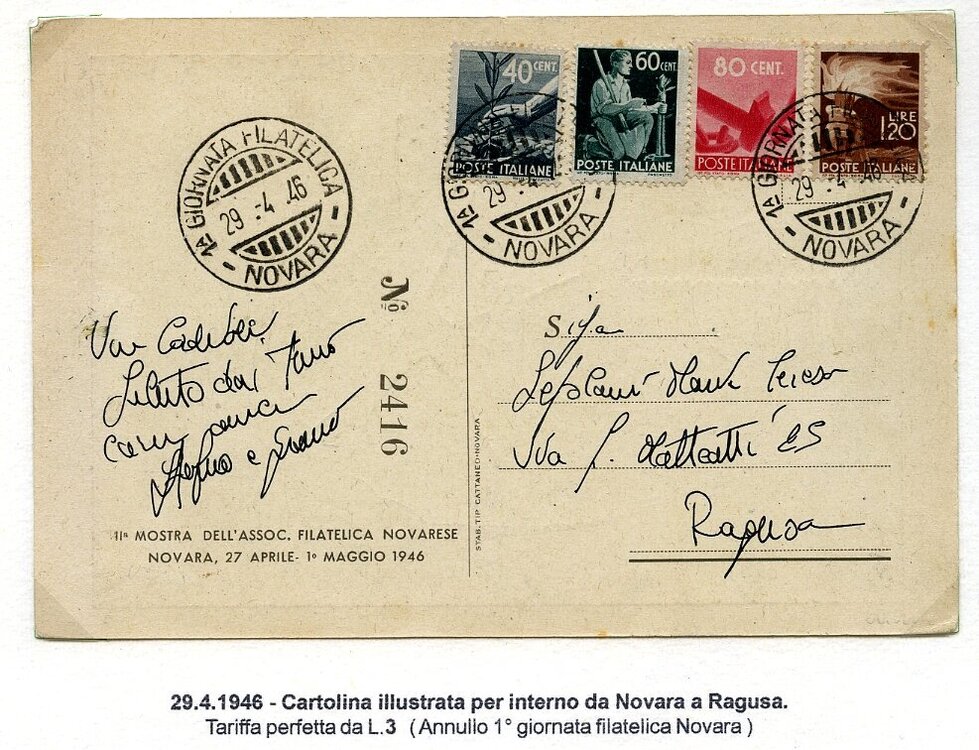 40 CENT.
POSTE ITALIANE
60 CENT
POSTE ITALIANE
80 CENT.
POSTE ITALIANE
LIRE
1,20
POSTE ITALIANE
1A GIORNATA FILATELICA
29 -4 .46
- NOVARA -
1A GIORNATA
29 -4
- NOVARA -
1A GIORNATA FI
29 -4 46
- NOVARA -
No 2416
Saluto dai
Stefano e
STAB. TIP. CATTANEO-NOVARA
Sig.a
Via G. Matteotti 25
Ragusa
IIa MOSTRA DELL'ASSOC. FILATELICA NOVARESE
NOVARA, 27 APRILE- 1o MAGGIO 1946
29.4.1946 - Cartolina illustrata per interno da Novara a Ragusa.
Tariffa perfetta da L.3 ( Annullo 1° giornata filatelica Novara )